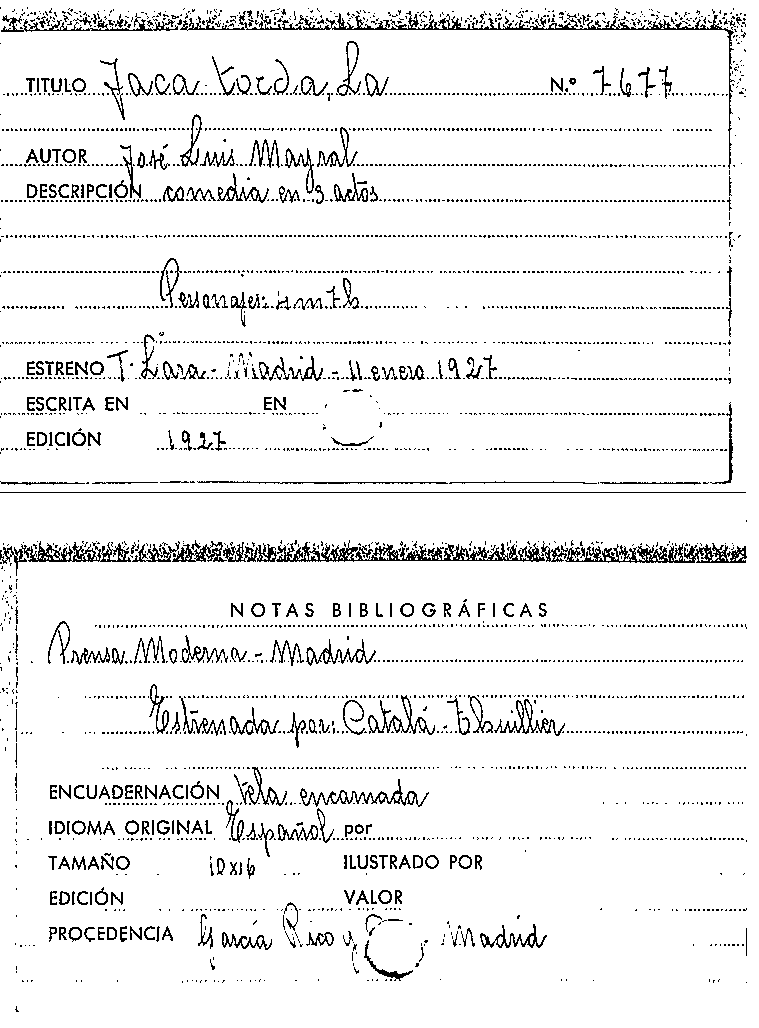 TITULO Jaca torda, La N.º 7677
AUTOR José Luis Mayral
DESCRIPCIÓN comedia en 3 actos
Personajes: 4 m 7 h
ESTRENO T. Lara - Madrid - 11 enero 1927
ESCRITA EN EN
EDICIÓN 1927
NOTAS BIBLIOGRÁFICAS
Prensa Moderna - Madrid
Estrenada por: Catalá - Thuillier
ENCUADERNACIÓN tela encarnada
IDIOMA ORIGINAL Español por
TAMAÑO 10x16 ILUSTRADO POR
EDICIÓN VALOR
PROCEDENCIA García Rico y Madrid